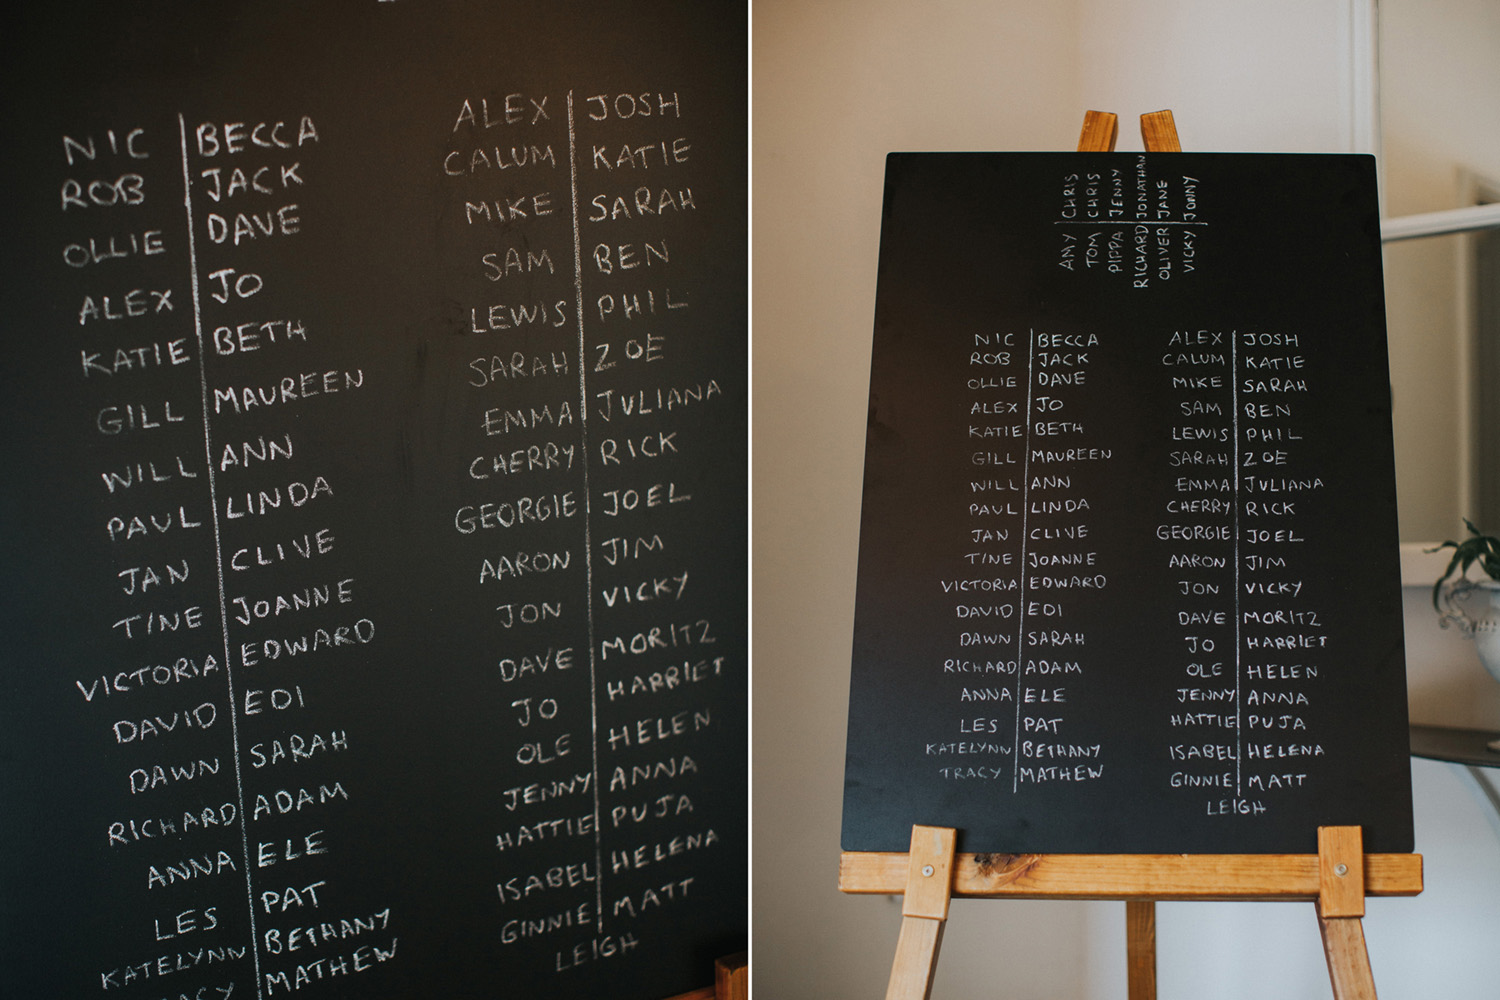 NIC BECCA
ROB JACK
OLLIE DAVE
ALEX JO
KATIE BETH
GILL MAUREEN
WILL ANN
PAUL LINDA
JAN CLIVE
TINE JOANNE
VICTORIA EDWARD
DAVID EDI
DAWN SARAH
RICHARD ADAM
ANNA ELE
LES PAT
KATELYNN BETHANY
TRACY MATHEW
ALEX JOSH
CALUM KATIE
MIKE SARAH
SAM BEN
LEWIS PHIL
SARAH ZOE
EMMA JULIANA
CHERRY RICK
GEORGIE JOEL
AARON JIM
JON VICKY
DAVE MORITZ
JO HARRIET
OLE HELEN
JENNY ANNA
HATTIE PUJA
ISABEL HELENA
GINNIE MATT
LEIGH
AMY CHRIS
TOM CHRIS
PIPPA JENNY
RICHARD JONATHAN
OLIVER JANE
VICKY JONNY
NIC BECCA
ROB JACK
OLLIE DAVE
ALEX JO
KATIE BETH
GILL MAUREEN
WILL ANN
PAUL LINDA
JAN CLIVE
TINE JOANNE
VICTORIA EDWARD
DAVID EDI
DAWN SARAH
RICHARD ADAM
ANNA ELE
LES PAT
KATELYNN BETHANY
TRACY MATHEW
ALEX JOSH
CALUM KATIE
MIKE SARAH
SAM BEN
LEWIS PHIL
SARAH ZOE
EMMA JULIANA
CHERRY RICK
GEORGIE JOEL
AARON JIM
JON VICKY
DAVE MORITZ
JO HARRIET
OLE HELEN
JENNY ANNA
HATTIE PUJA
ISABEL HELENA
GINNIE MATT
LEIGH